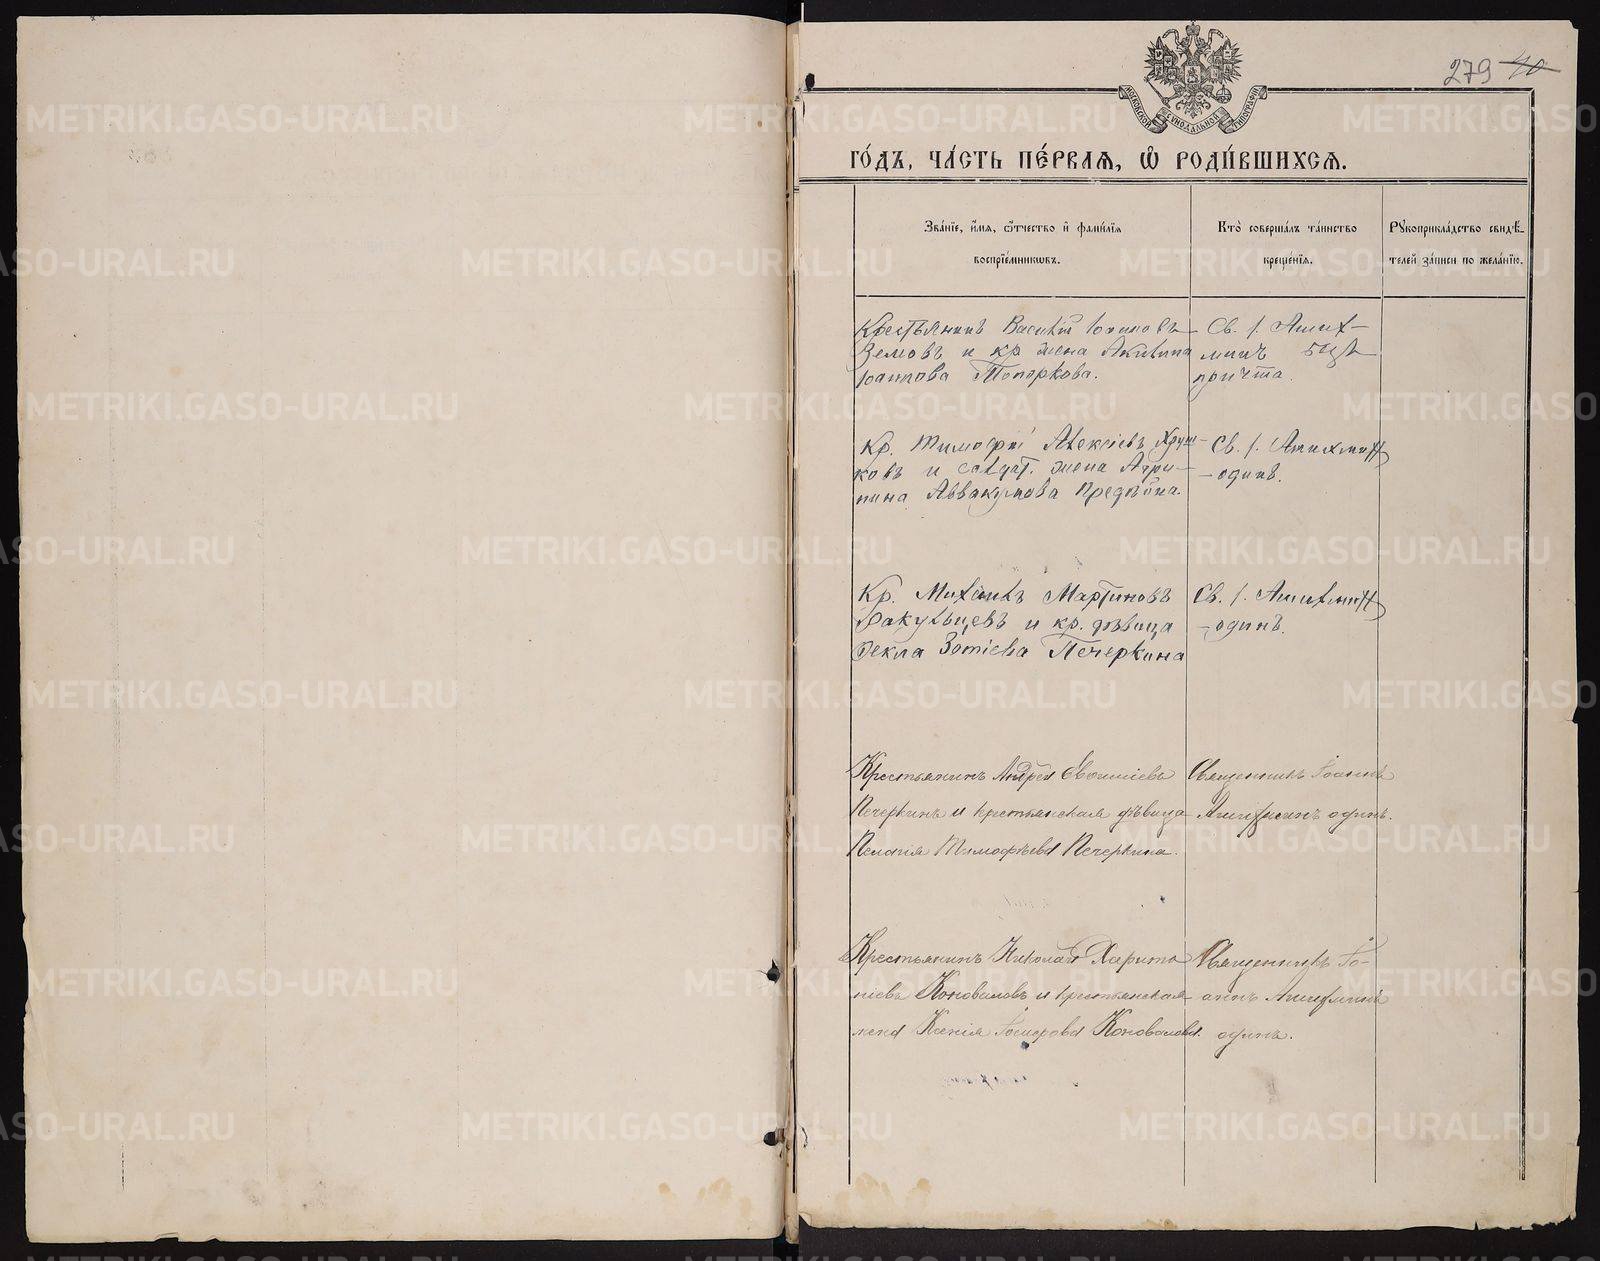 279 40
МОСКОВСКОЙ СУНОДАЛЬНОЙ ТИПОГРАФІИ
ГО́ДЪ, ЧА́СТЬ ПЕ́РВАѦ, Ѽ РОДИ́ВШИХСѦ.
Зва́нїе, и҆́мѧ, ѻ҆́тчество и҆ фами́лїѧ
воспрїе́мникѡвъ.
Кто̀ соверша́лъ та́инство
креще́нїѧ.
Рꙋкоприкла́дство свидѣ́-
телей за́писи по жела́нїю.
Крестьянинъ Василій Іоанновъ
Земовъ и кр. жена Акилина
Іоаннова Топоркова.
Св. І. Ашихминъ безъ
причта.
Кр. Тимофей Алексіевъ
ковъ и солдат. жена Агри-
пина Аввакумова
Св. І. Ашихминъ
одинъ.
Кр. Михаилъ Мартиновъ
Бакульцевъ и кр. дѣвица
Ѳекла Зотіева Печеркина
Св. І. Ашихминъ
одинъ.
Крестьянинъ Андрей
Печеркинъ и крестьянская дѣвица
Пелагія Тимофѣева Печеркина.
Священникъ Іоаннъ
Ашихминъ одинъ.
Крестьянинъ Николай Харито-
ніевъ Коноваловъ и крестьянская
жена Ксенія Коновалова.
Священникъ Іо-
аннъ Ашихминъ
одинъ.
METRIKI.GASO-URAL.RU